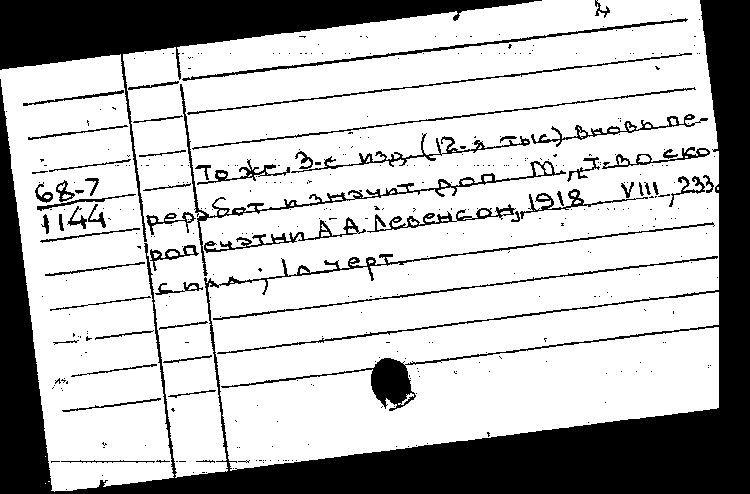 2
То же, 3-е изд. (12-я тыс) вновь пе-
68-7
1144
реработ. и значит. доп М., Т-во ско-
ропечатни А А. Левенсон, 1918 VIII, 233с
с илл.; 1 л черт.